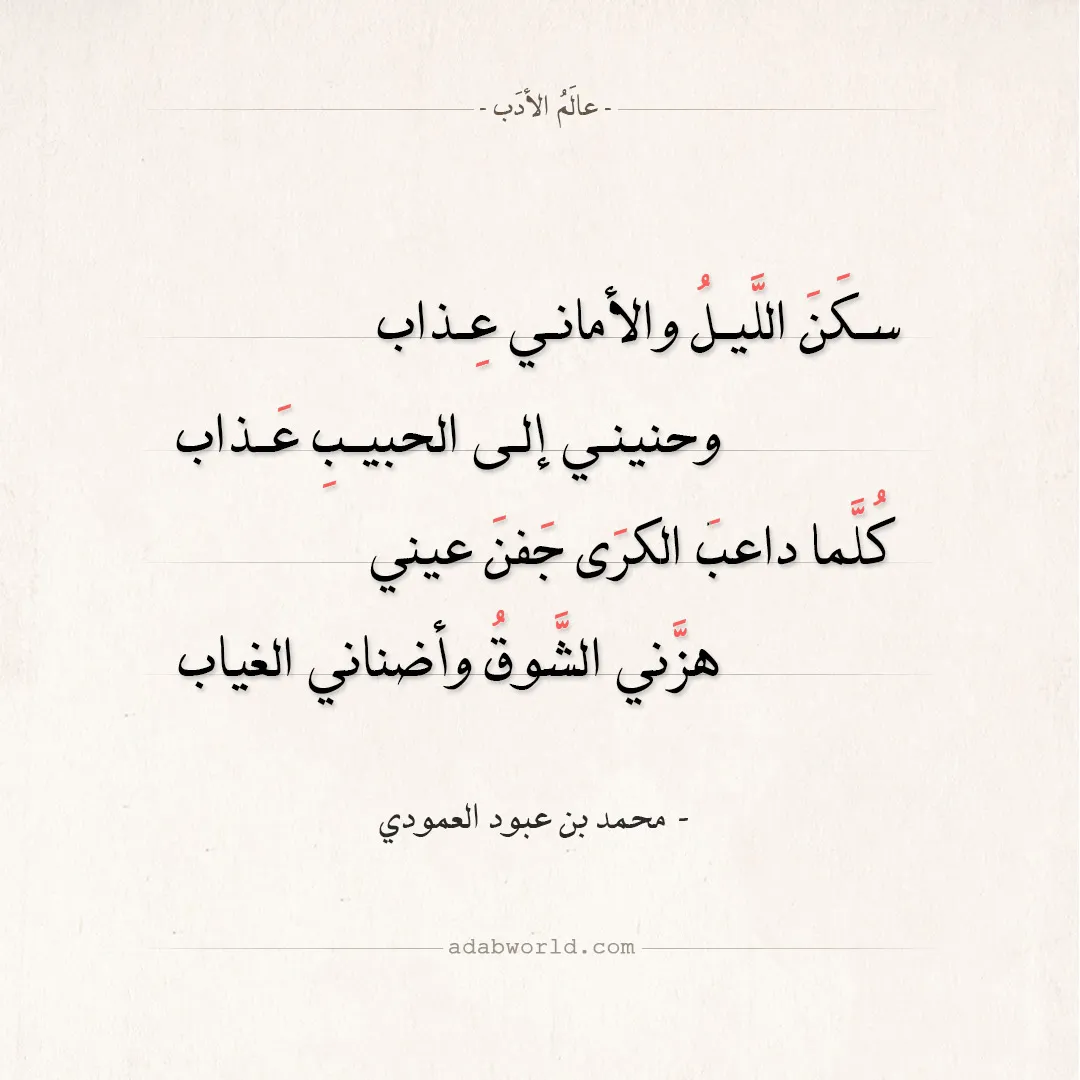 - عالَمُ الأدَب -
سكَنَ اللَّيلُ والأماني عِذاب
وحنيني إلى الحبيبِ عَذاب
كُلَّما داعبَ الكرَى جَفنَ عيني
هزَّني الشَّوقُ وأضناني الغياب
- محمد بن عبود العمودي
adabworld.com